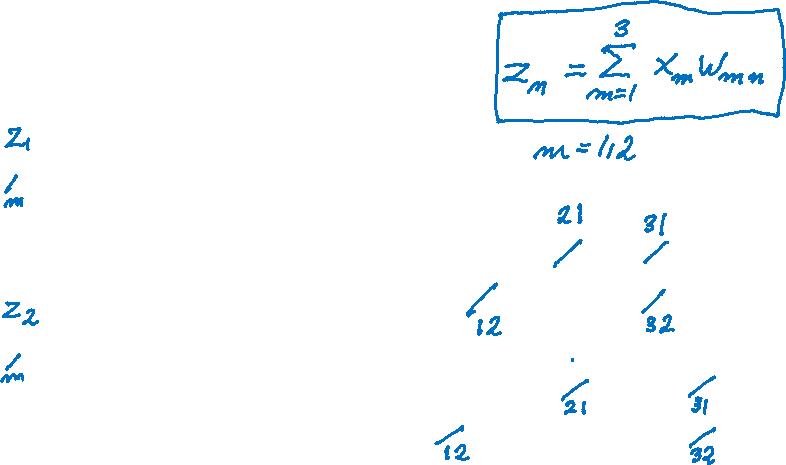 z_n = \sum_{m=1}^{3} x_m w_{mn}
z_1
m = 1,2
/m
21 31
/ /
z_2
/12 /32
/m
/21 /31
/12 /32